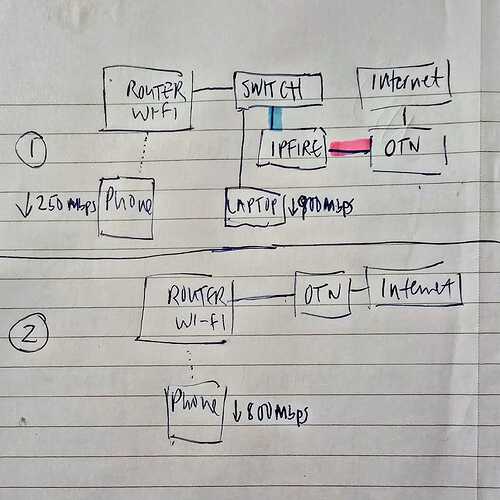 ROUTER
WI-FI
SWITCH
Internet
1
IPFIRE
OTN
↓250mbps
Phone
LAPTOP
↓900mbps
2
ROUTER
WI-FI
OTN
Internet
Phone
↓800mbps